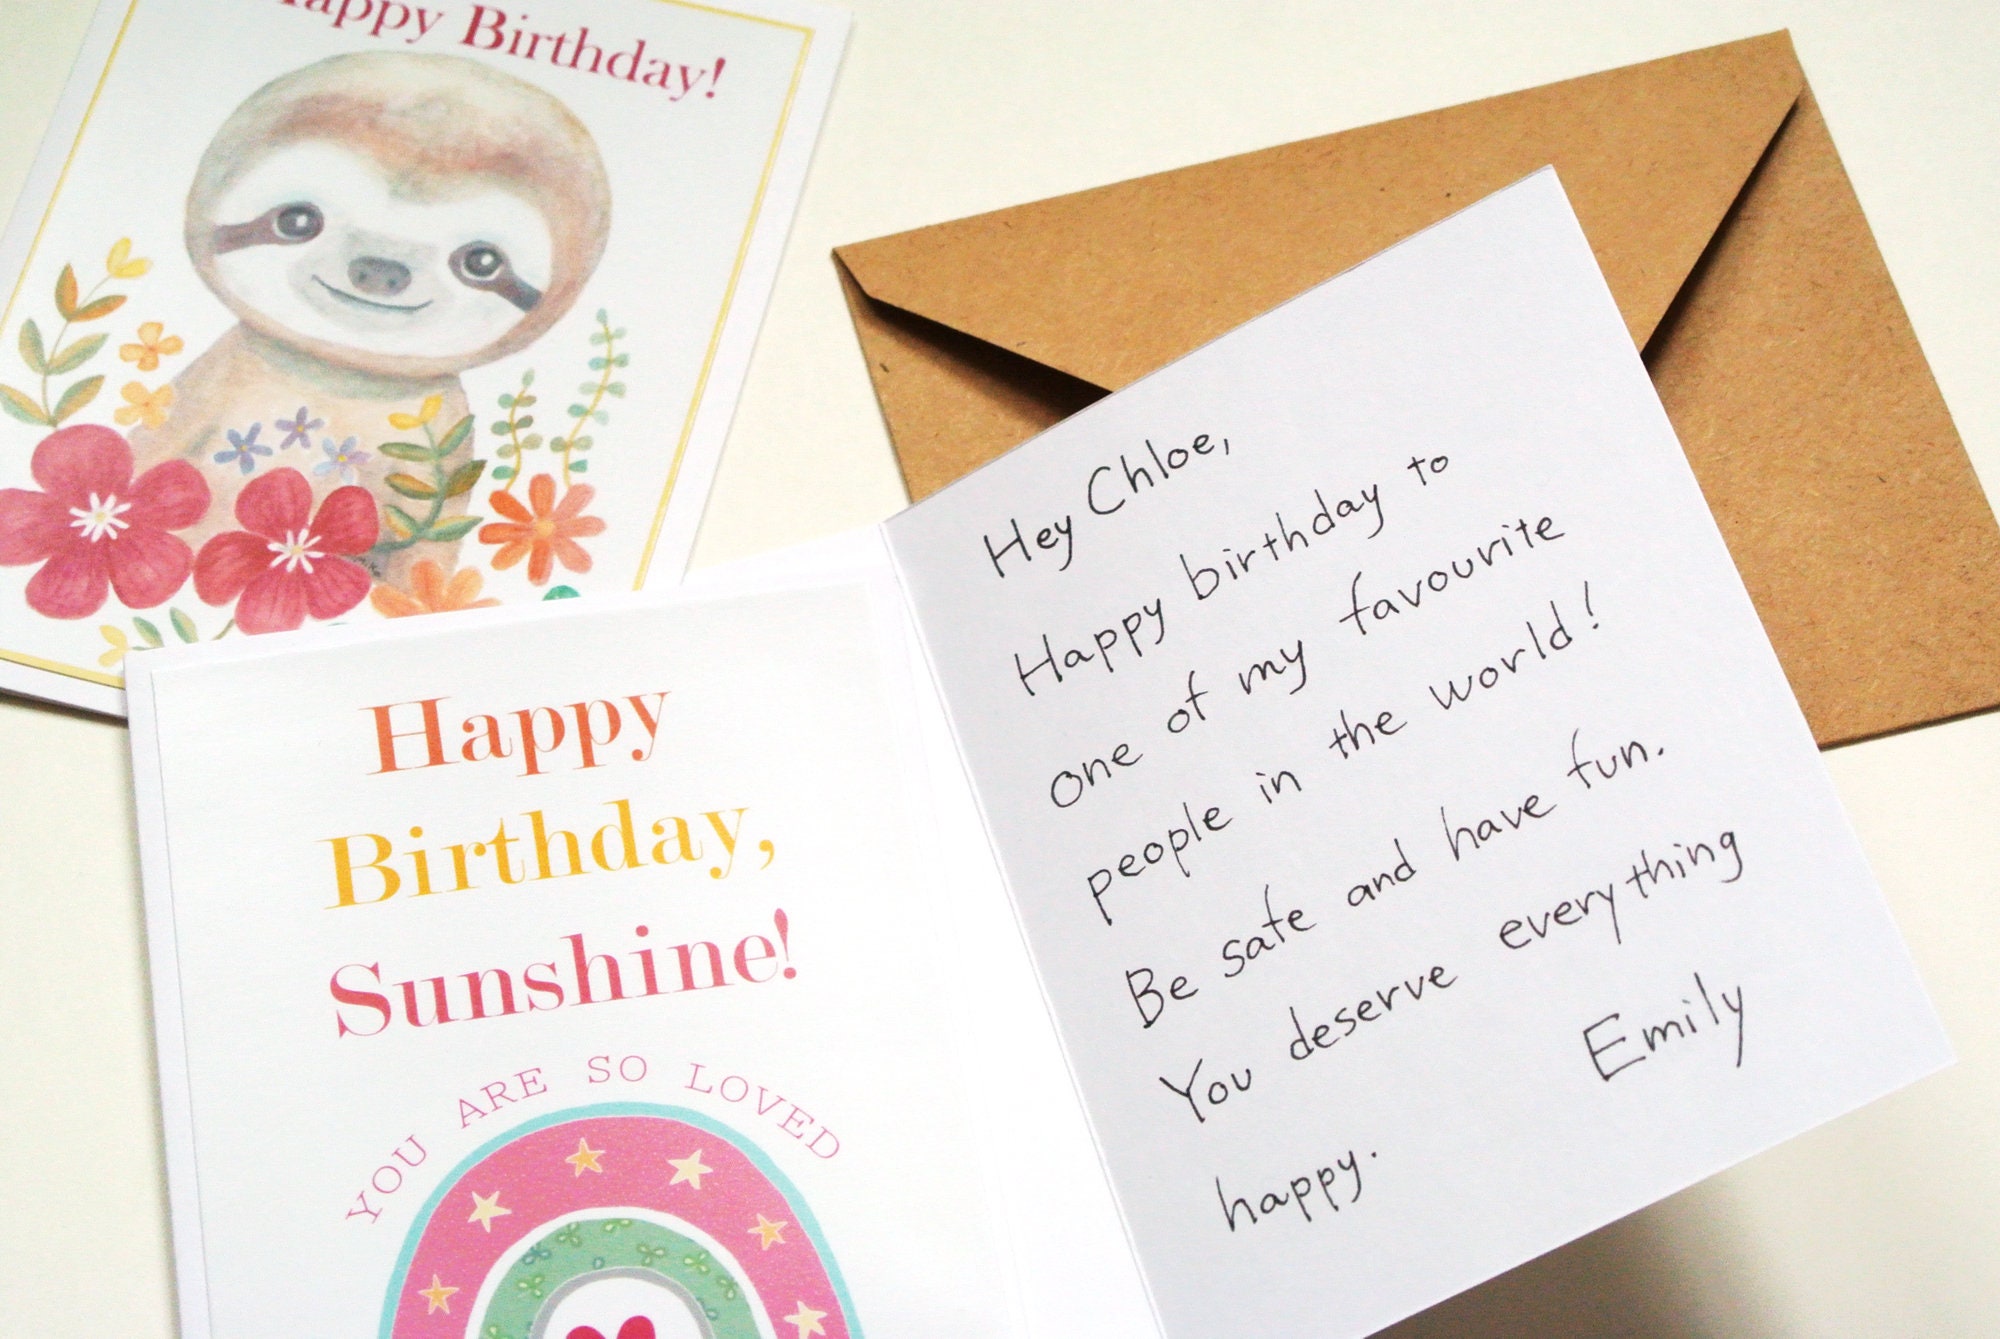 Happy Birthday!
Happy
Birthday,
Sunshine!
YOU ARE SO LOVED
Hey Chloe,
Happy birthday to
one of my favourite
people in the world!
Be safe and have fun.
You deserve everything
happy.
Emily